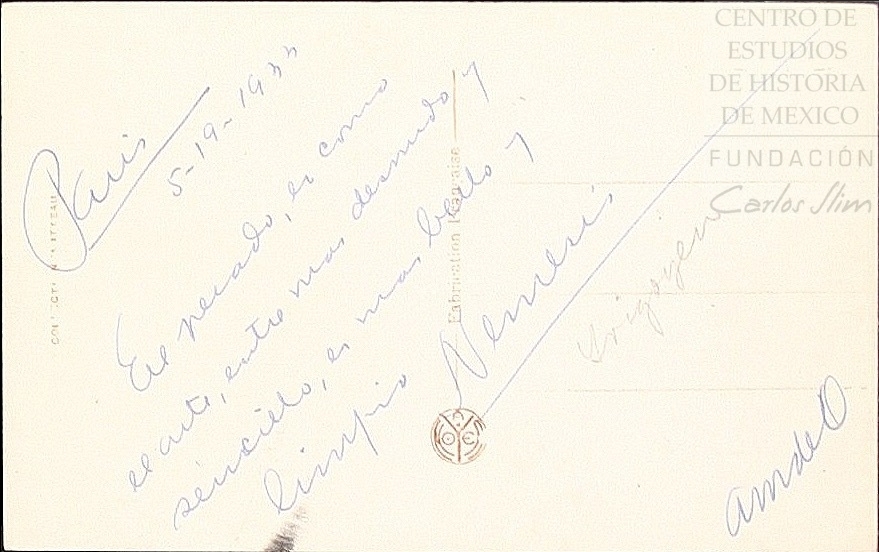 CENTRO DE
ESTUDIOS
DE HISTORIA
DE MEXICO
FUNDACIÓN
Carlos Slim
Paris
5-19-1933
El pecado, es como
el arte, entre mas desnudo y
sencillo, es mas bello y
limpio
Nemesi
Irigoyen
AmdeO
Fabrication Française